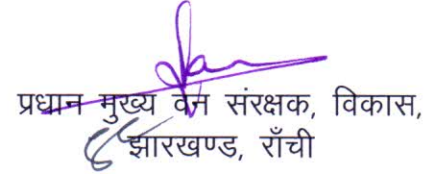 प्रधान मुख्य वन संरक्षक, विकास,
झारखण्ड, राँची